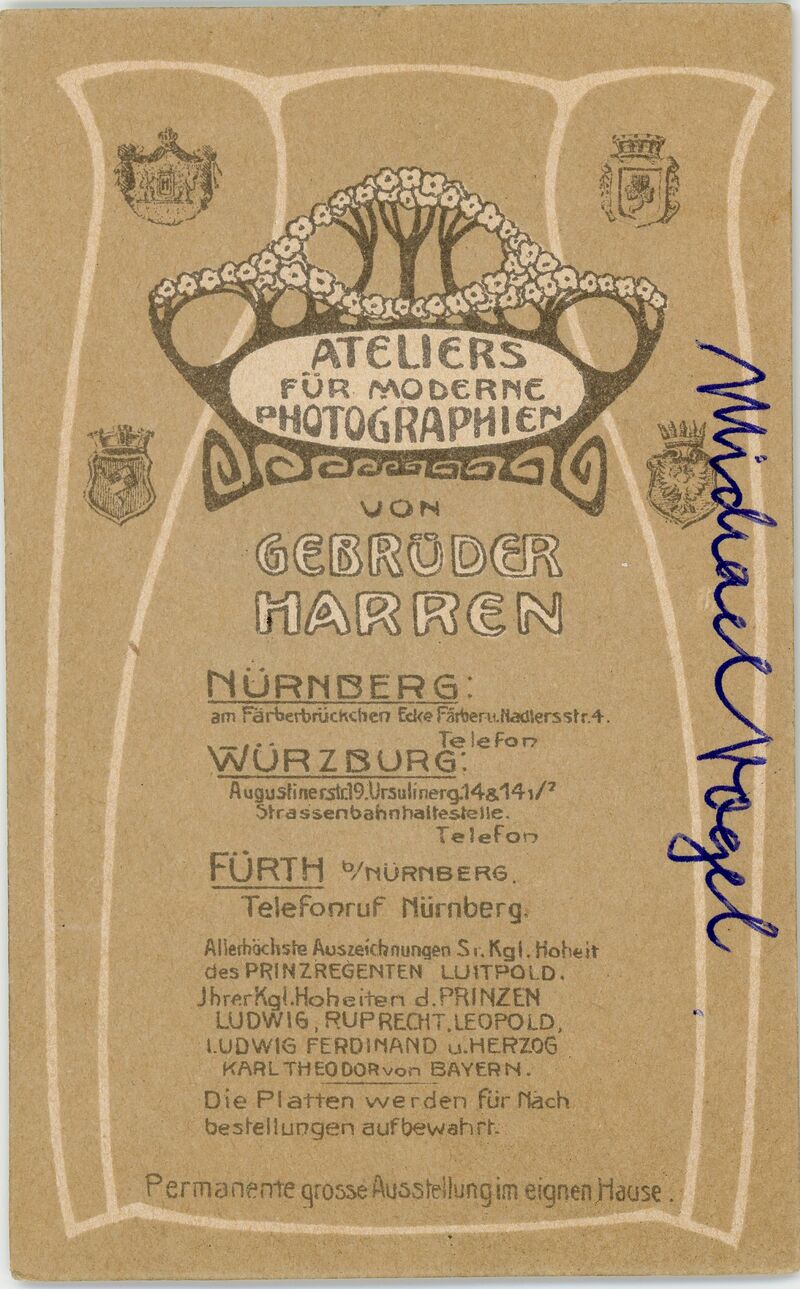 ATELIERS
FÜR MODERNE
PHOTOGRAPHIEN
VON
GEBRÜDER
HARREN
NÜRNBERG:
am Färberbrückchen Ecke Färber u. Nadlersstr. 4.
Telefon
WÜRZBURG:
Augustinerstr. 19. Ursulinerg. 14 & 14 1/2
Strassenbahnhaltestelle.
Telefon
FÜRTH b/NÜRNBERG.
Telefonruf Nürnberg.
Allerhöchste Auszeichnungen Sr. Kgl. Hoheit
des PRINZREGENTEN LUITPOLD.
Jhrer Kgl. Hoheiten d. PRINZEN
LUDWIG, RUPRECHT, LEOPOLD,
LUDWIG FERDINAND u. HERZOG
KARL THEODOR von BAYERN.
Die Platten werden für Nach
bestellungen aufbewahrt.
Permanente grosse Ausstellung im eignen Hause.
Michael Vogel